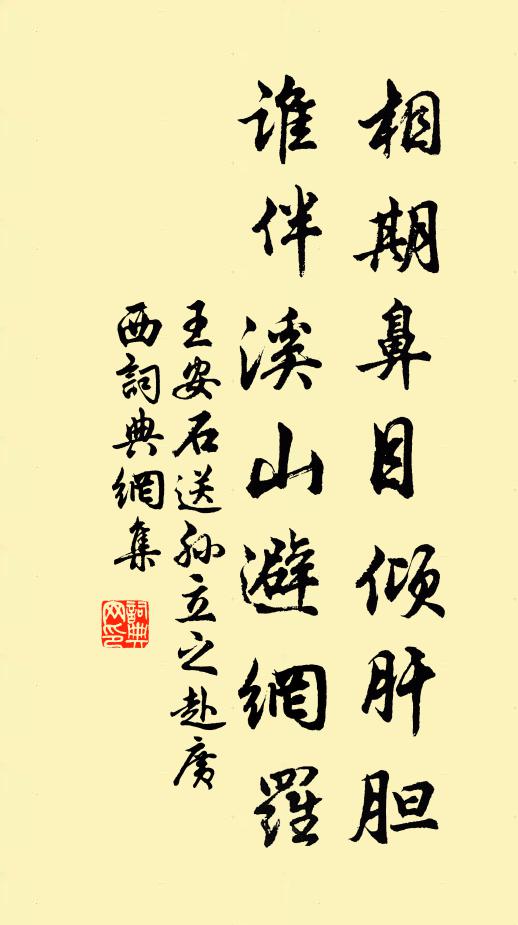 相期鼻目倾肝胆
谁伴溪山避網羅
王安石送孙立之赴廣
西詞典網集
詞典網印